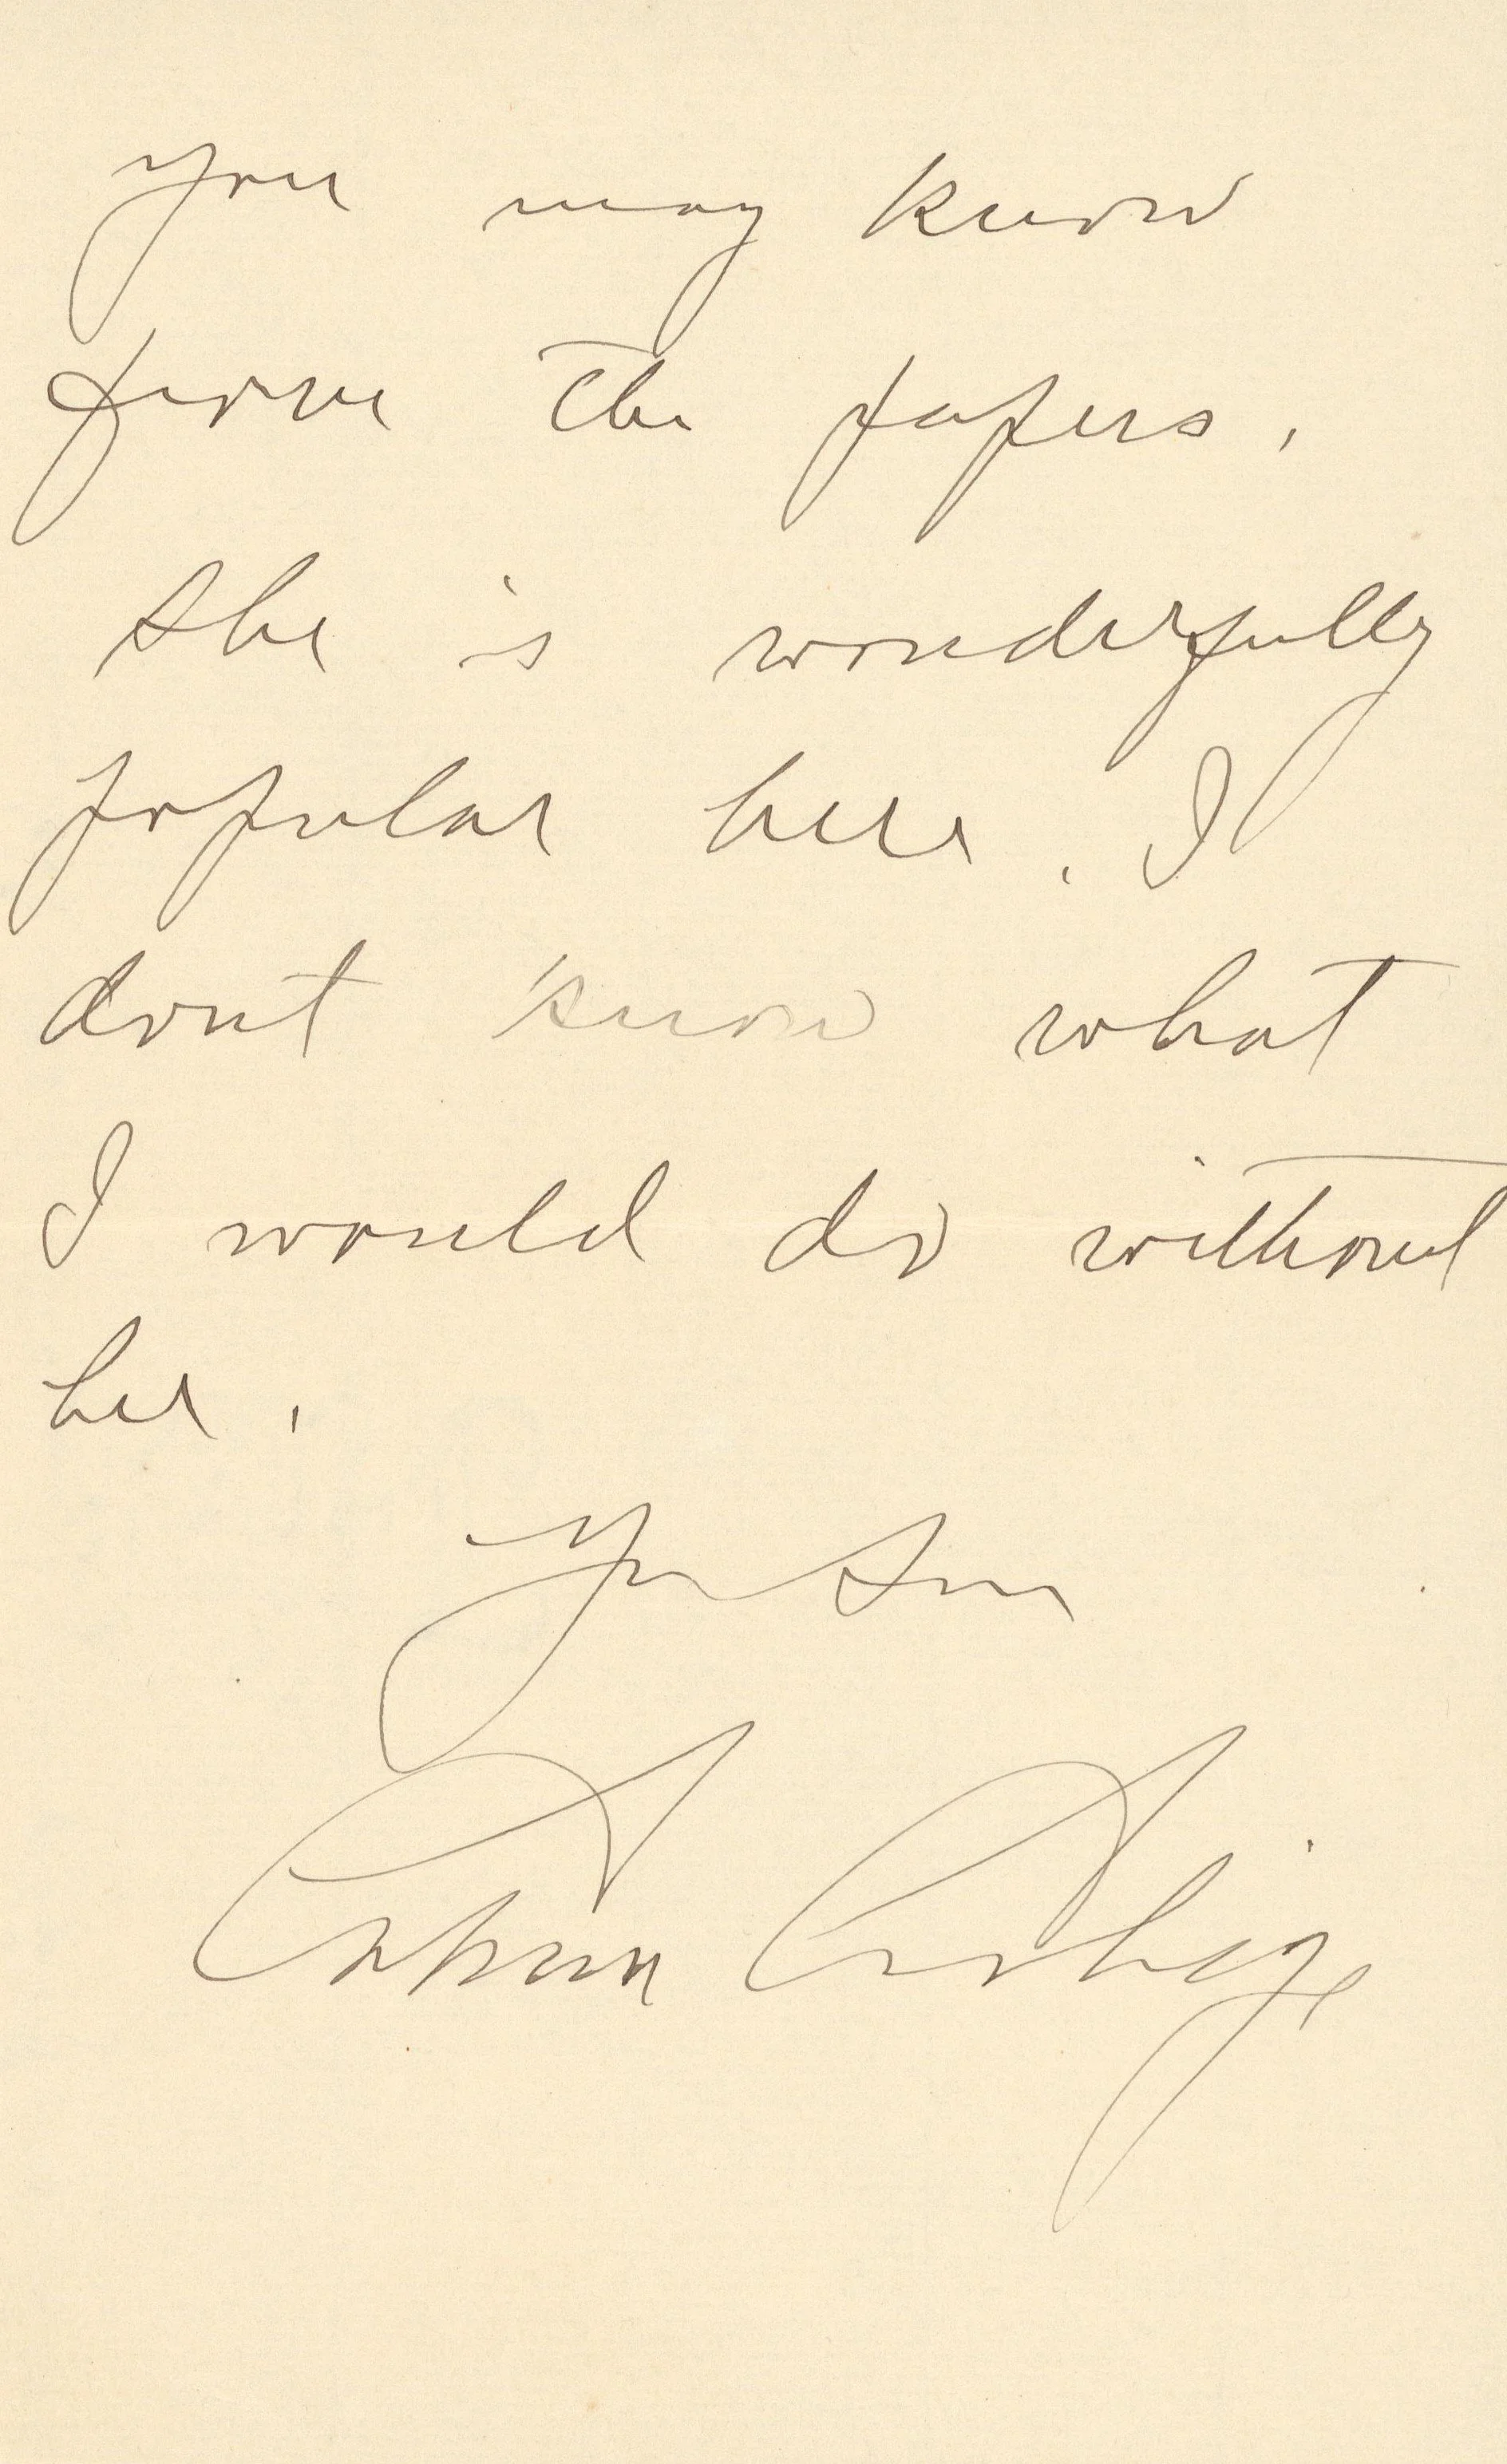 you may know
from the papers.
She is wonderfully
popular here. I
dont know what
I would do without
her.
Your Son
Calvin Coolidge